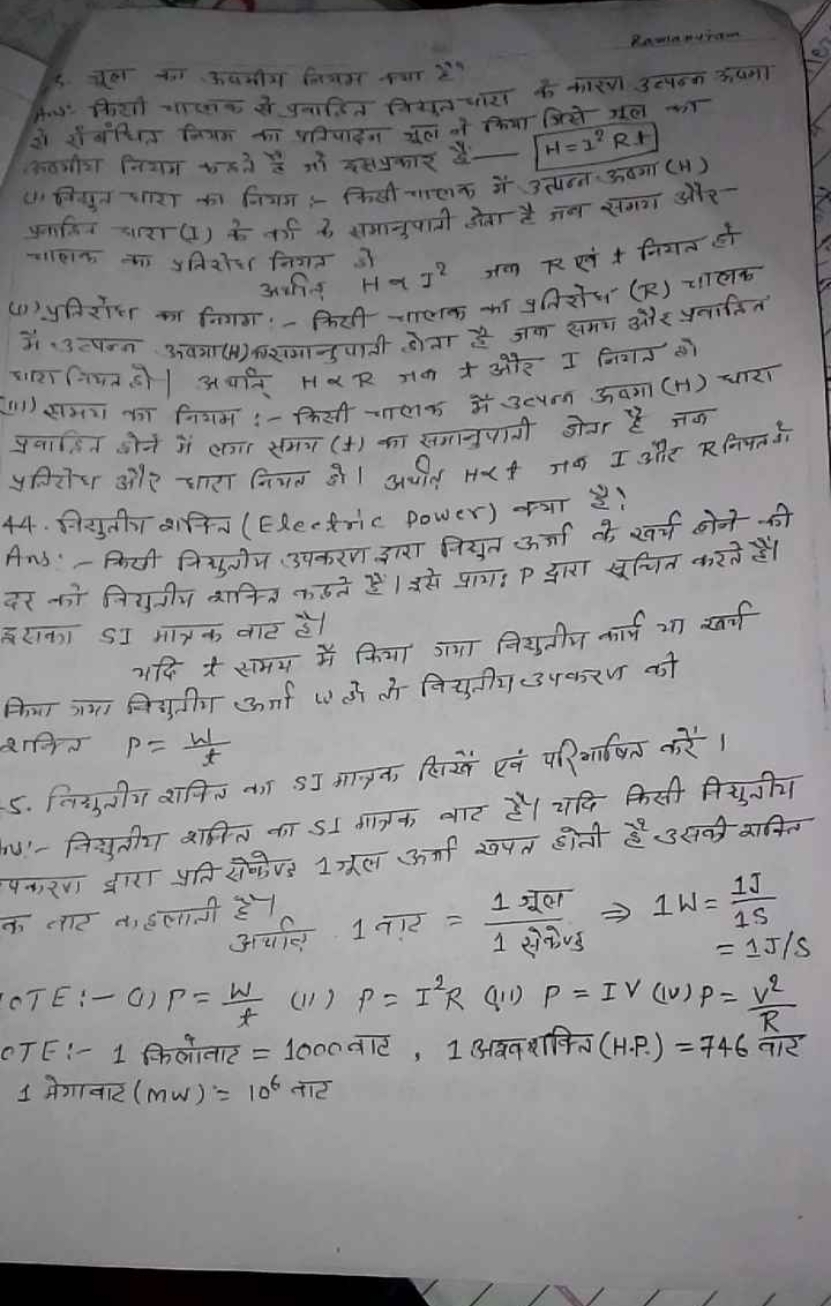 Ramanujam
3. जूल का ऊष्मीय नियम क्या है?
Ans:- किसी चालक से प्रवाहित विद्युत धारा के कारण उत्पन्न ऊष्मा
से संबंधित नियम का प्रतिपादन जूल ने किया जिसे जूल का
ऊष्मीय नियम कहते हैं जो इसप्रकार है— H = I² R t
(i) विद्युत धारा का नियम :- किसी चालक में उत्पन्न ऊष्मा (H)
प्रवाहित धारा (I) के वर्ग के समानुपाती होता है जब समय और
चालक का प्रतिरोध नियत हो
अर्थात् H ∝ I² जब R एवं t नियत हो
(ii) प्रतिरोध का नियम :- किसी चालक का प्रतिरोध (R) चालक
में उत्पन्न ऊष्मा (H) का समानुपाती होता है जब समय और प्रवाहित
धारा नियत हो। अर्थात् H ∝ R जब t और I नियत हो
(iii) समय का नियम :- किसी चालक में उत्पन्न ऊष्मा (H) धारा
प्रवाहित होने में लगा समय (t) का समानुपाती होता है जब
प्रतिरोध और धारा नियत हो। अर्थात् H ∝ t जब I और R नियत हो
44. विद्युतीय शक्ति (Electric Power) क्या है?
Ans:- किसी विद्युतीय उपकरण द्वारा विद्युत ऊर्जा के खर्च होने की
दर को विद्युतीय शक्ति कहते हैं। इसे प्रायः P द्वारा सूचित करते हैं।
इसका SI मात्रक वाट है।
यदि t समय में किया गया विद्युतीय कार्य या खर्च
किया गया विद्युतीय ऊर्जा W हो तो विद्युतीय उपकरण की
शक्ति P = W/t
5. विद्युतीय शक्ति का SI मात्रक लिखें एवं परिभाषित करें।
Ans:- विद्युतीय शक्ति का SI मात्रक वाट है। यदि किसी विद्युतीय
उपकरण द्वारा प्रति सेकेण्ड 1 जूल ऊर्जा खपत होती है उसकी शक्ति
एक वाट कहलाती है।
अर्थात् 1 वाट = 1 जूल/1 सेकेण्ड ⇒ 1W = 1J/1S
= 1J/S
NOTE:- (i) P = W/t (ii) P = I²R (iii) P = IV (iv) P = V²/R
NOTE:- 1 किलोवाट = 1000 वाट, 1 अश्वशक्ति (H.P.) = 746 वाट
1 मेगावाट (MW) = 10⁶ वाट